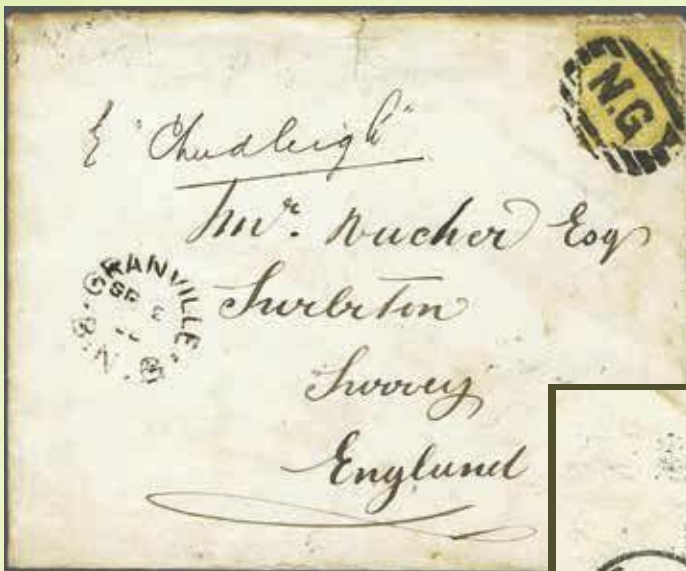 N.G
"Chudleigh"
Mr. Esq
Surbiton
Surrey
England
GRANVILLE
SP 3
N.G